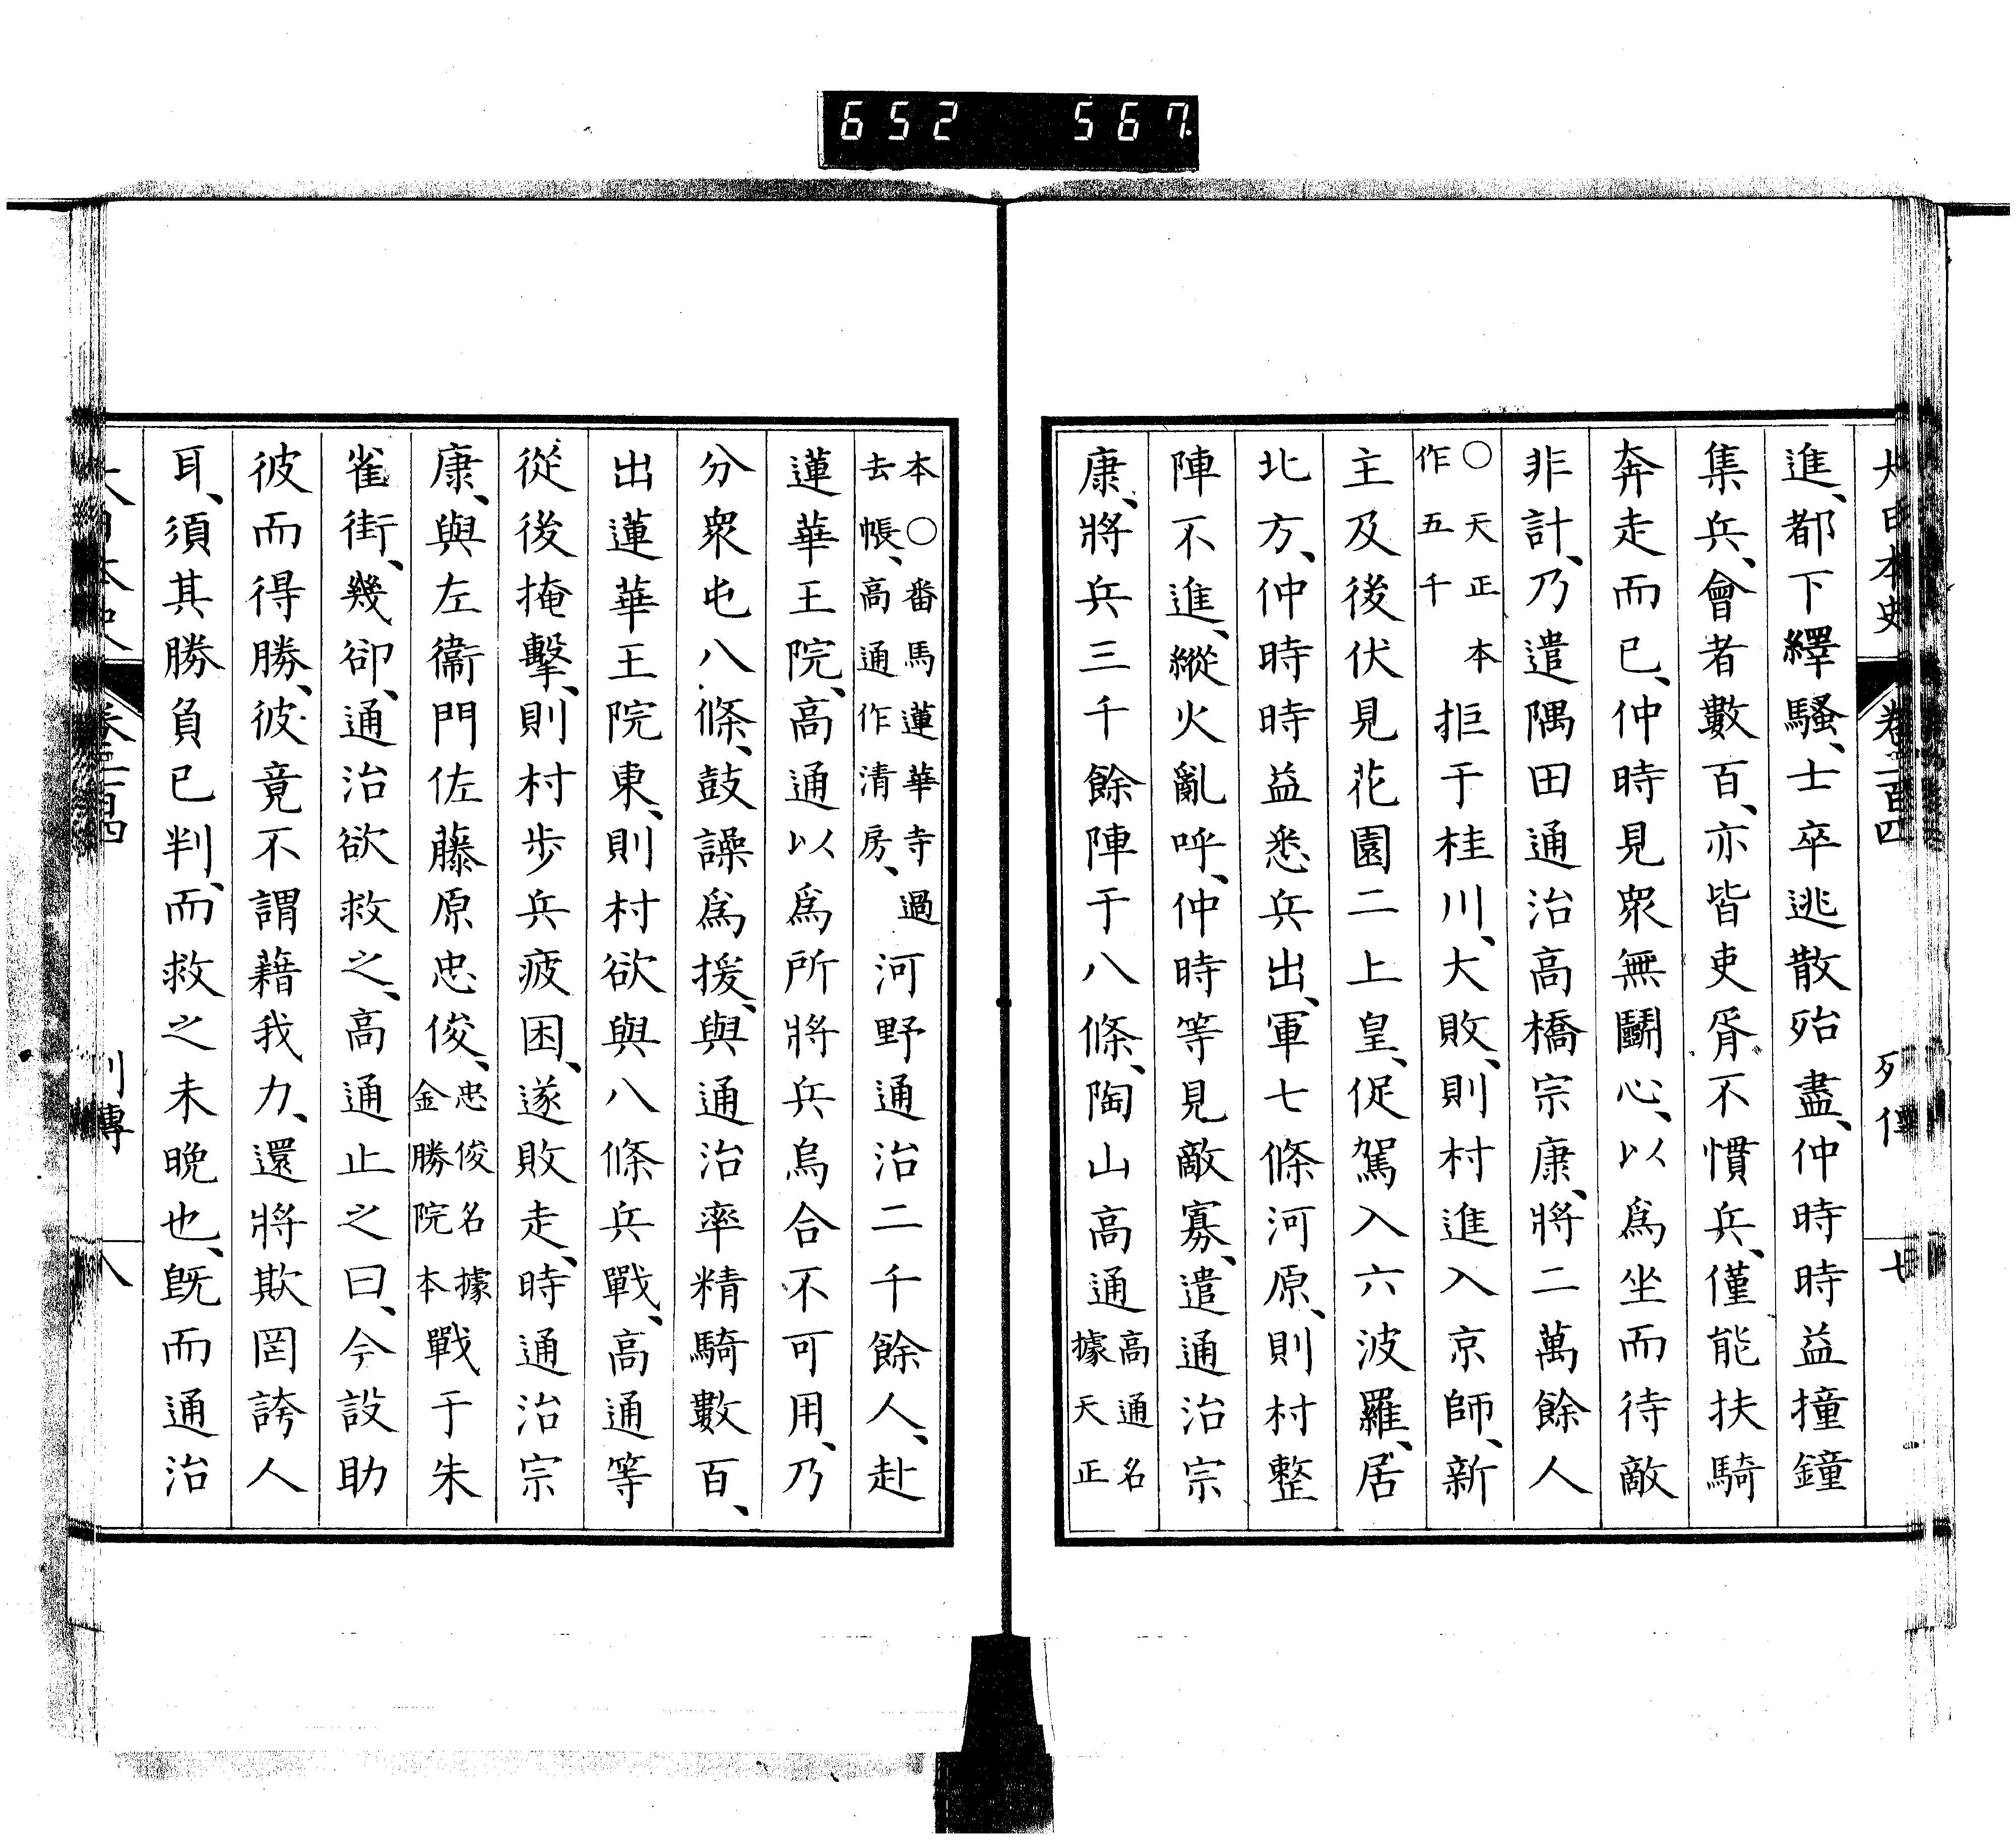 652 567
大日本史 卷二百四 列傳 七
進、都下繹騷、士卒逃散殆盡、仲時時益撞鐘
集兵、會者數百、亦皆吏胥不慣兵、僅能扶騎
奔走而已、仲時見衆無鬭心、以爲坐而待敵
非計、乃遣隅田通治高橋宗康、將二萬餘人
○天正本作五千拒于桂川、大敗、則村進入京師、新
主及後伏見花園二上皇、促駕入六波羅、居
北方、仲時時益悉兵出、軍七條河原、則村整
陣不進、縱火亂呼、仲時等見敵寡、遣通治宗
康、將兵三千餘陣于八條、陶山高通高通名據天正
本○番馬蓮華寺過去帳、高通作清房、河野通治二千餘人、赴
蓮華王院、高通以爲所將兵烏合不可用、乃
分衆屯八條、鼓譟爲援、與通治率精騎數百、
出蓮華王院東、則村欲與八條兵戰、高通等
從後掩擊、則村步兵疲困、遂敗走、時通治宗
康、與左衞門佐藤原忠俊、忠俊名據金勝院本戰于朱
雀街、幾卻、通治欲救之、高通止之曰、今設助
彼而得勝、彼竟不謂藉我力、還將欺罔誇人
耳、須其勝負已判、而救之未晚也、既而通治
大日本史 卷二百四 列傳 八